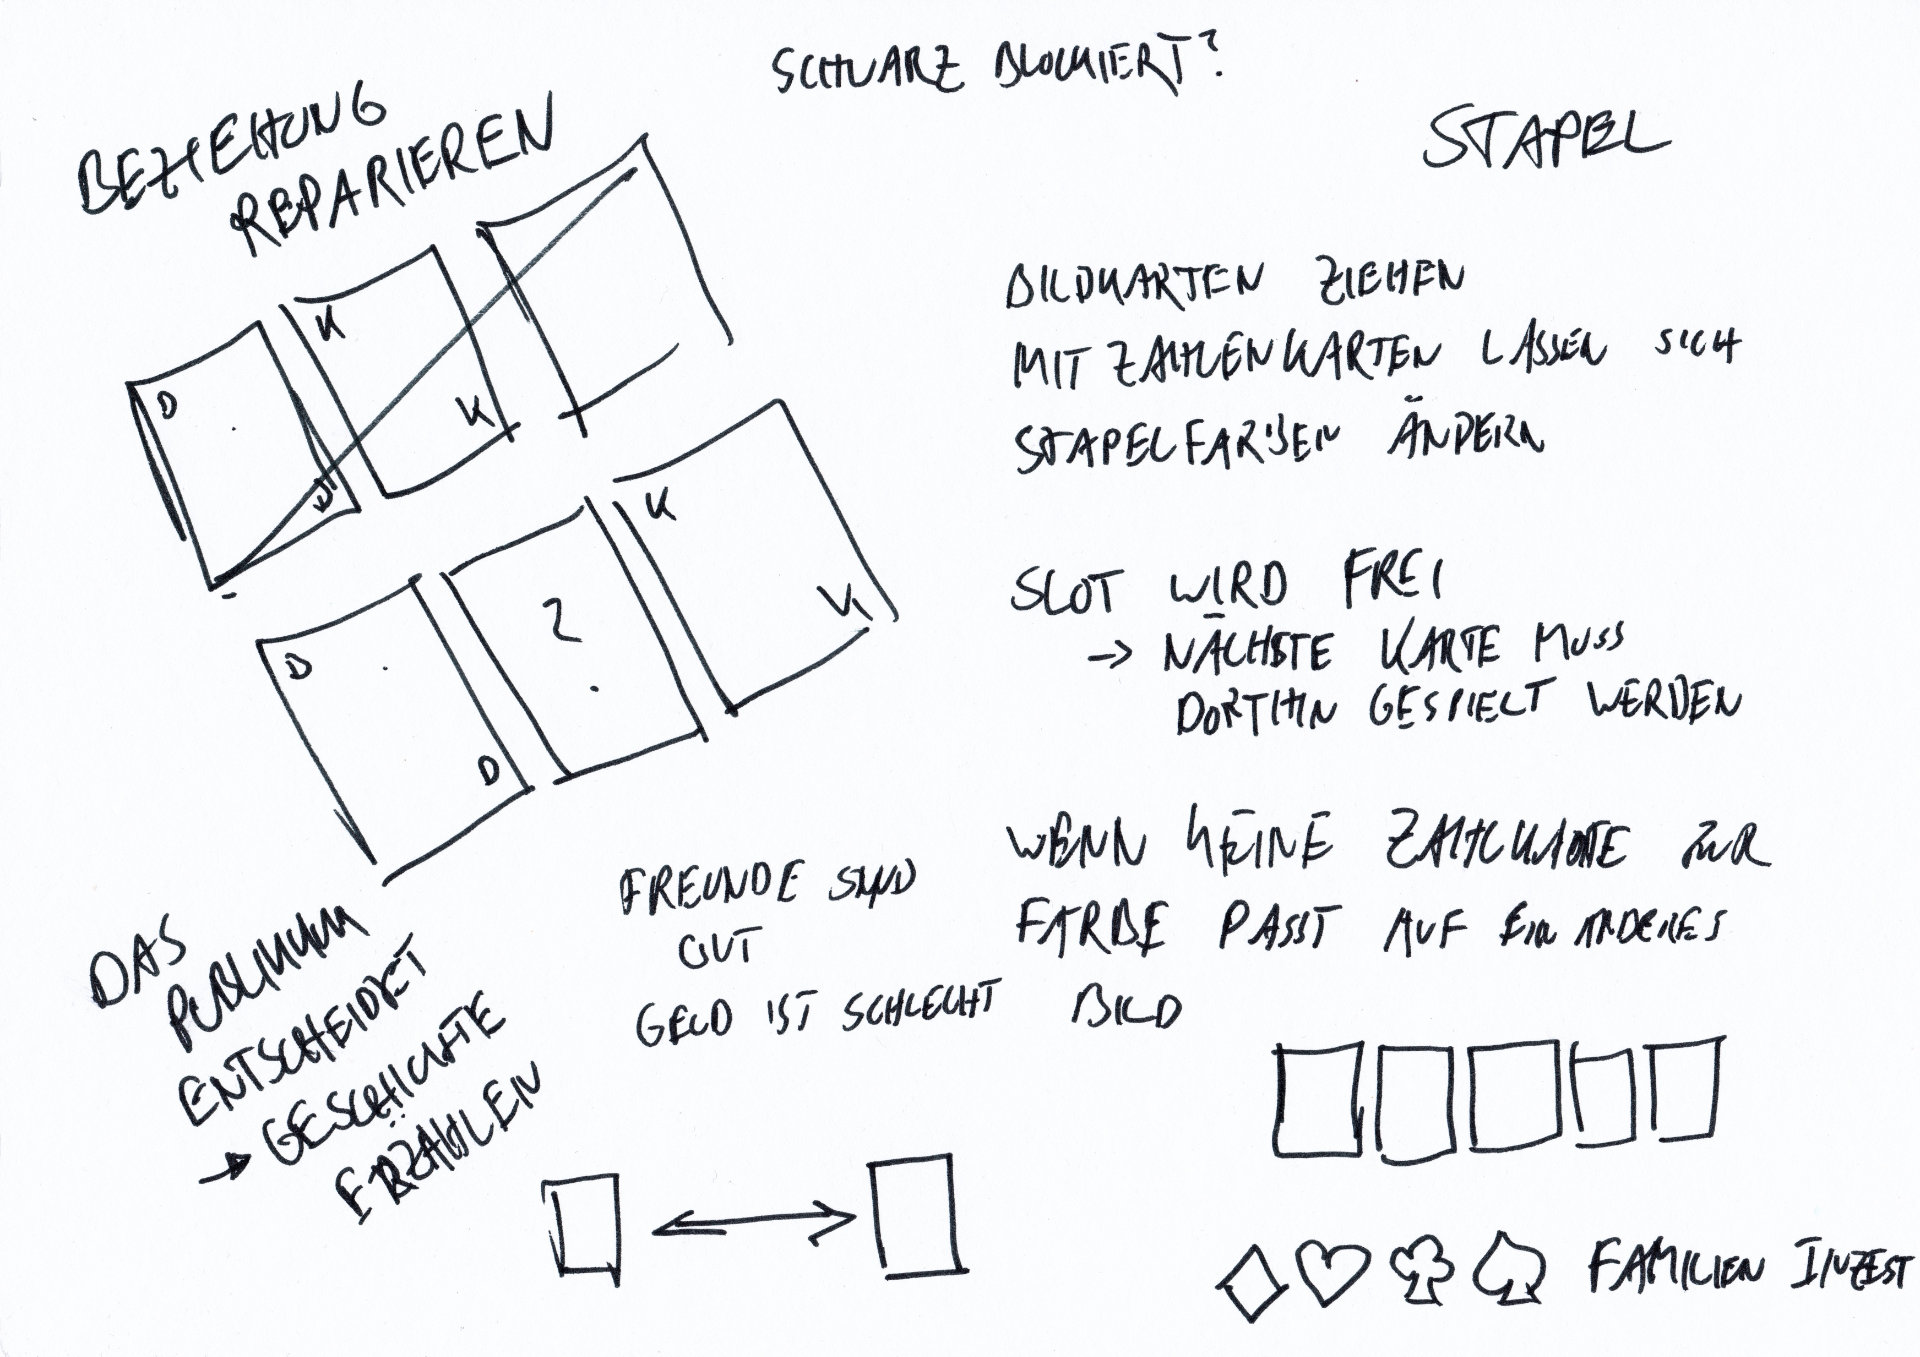 SCHWARZ BLOCKIERT?
BEZIEHUNG
REPARIEREN
STAPEL
K
D
K
D
BILDKARTEN ZIEHEN
MIT ZAHLENKARTEN LASSEN SICH
STAPELFARBEN ÄNDERN
K
?
K
D
D
SLOT WIRD FREI
→ NÄCHSTE KARTE MUSS
DORTHIN GESPIELT WERDEN
WENN KEINE ZAHLKARTE ZUR
FARBE PASST AUF EIN ANDERES
BILD
FREUNDE SIND
GUT
GELD IST SCHLECHT
DAS
PUBLIKUM
ENTSCHEIDET
→ GESCHICHTE
ERZÄHLEN
FAMILIEN INZEST